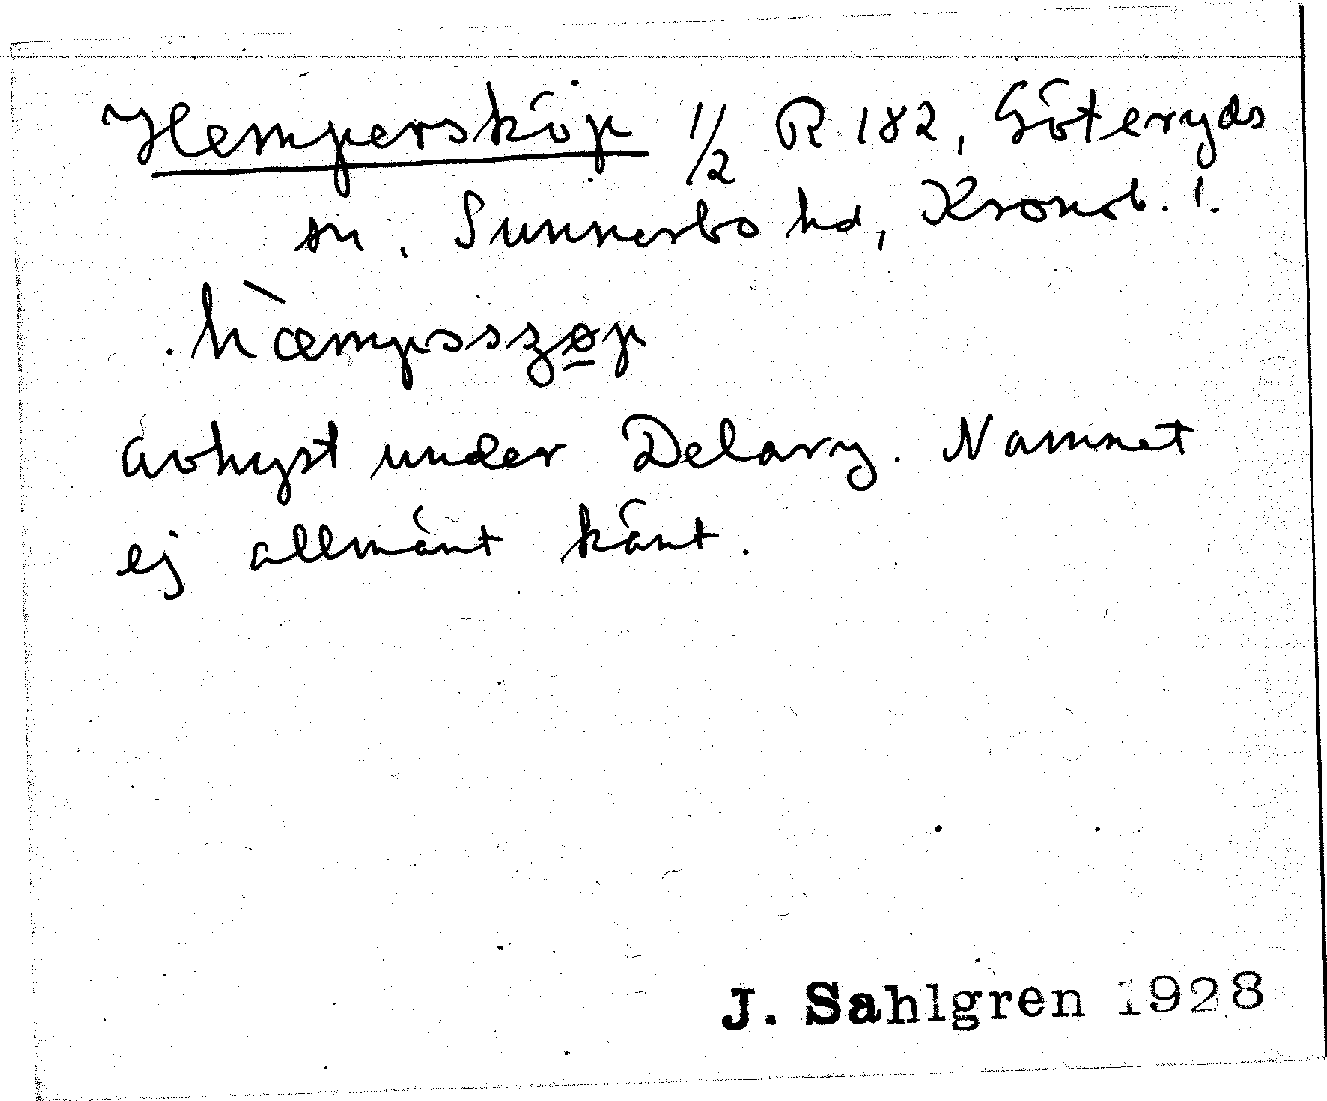 Hemperskȫp 1/2 R 182, Göteryds
sn. Sunnerbo hd, Kronob. l.
hæ̀mpsszøp
avhyst under Delary. Namnet
ej allmänt känt.
J. Sahlgren 1928